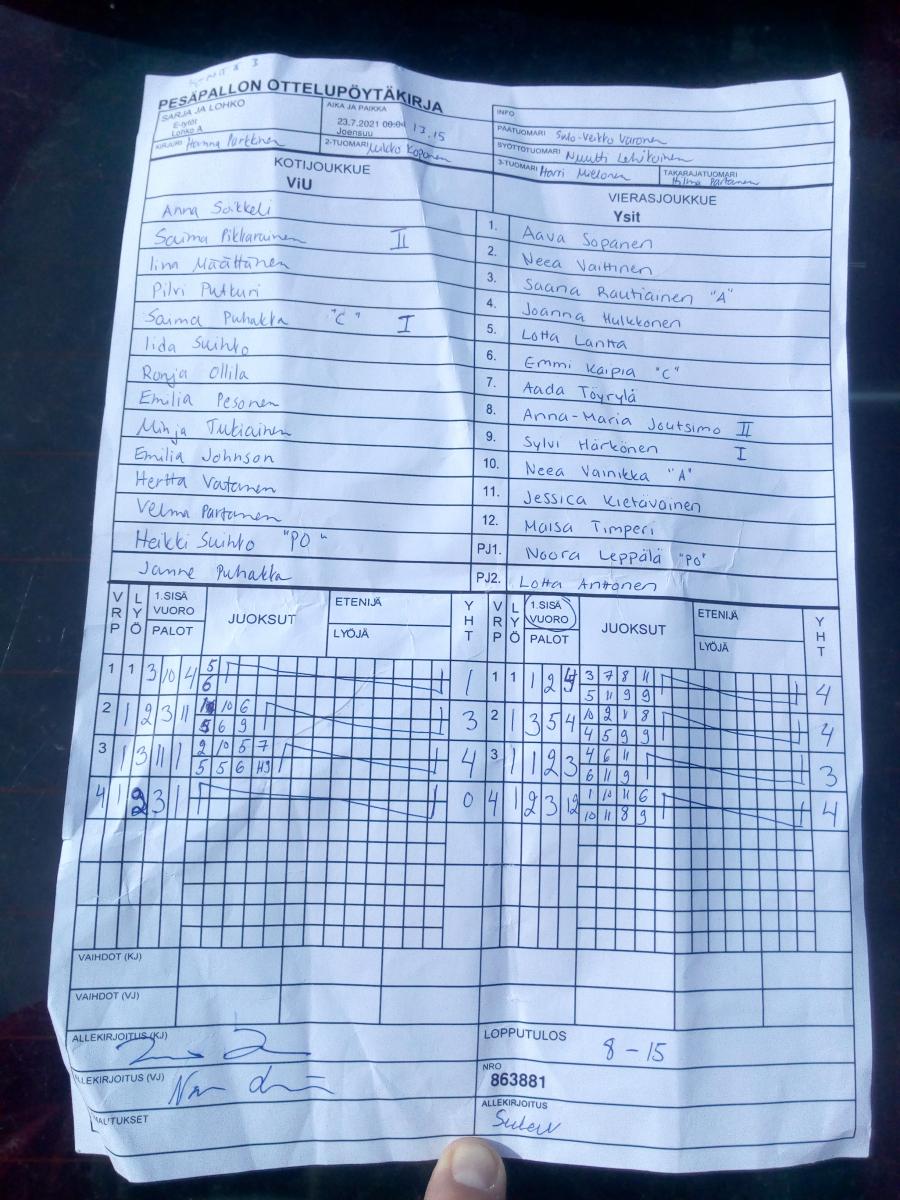 PESÄPALLON OTTELUPÖYTÄKIRJA
SARJA JA LOHKO
E-tytöt
Lohko A
AIKA JA PAIKKA
23.7.2021 00:00 17.15
Joensuu
INFO
PÄÄTUOMARI Sulo-Veikko Varonen
KIRJURI Hanna Parkkinen
2-TUOMARI Mikko Koponen
SYÖTTÖTUOMARI Nuutti Lehikoinen
3-TUOMARI Harri Miettonen
TAKARAJATUOMARI
Hilma Partanen
KOTIJOUKKUE
ViU
VIERASJOUKKUE
Ysit
Anna Soikkeli
Saima Pikkarainen II
Iina Määttänen
Pilvi Putturi
Saima Puhakka "C" I
Iida Suihko
Ronja Ollila
Emilia Pesonen
Minja Tukiainen
Emilia Johnson
Hertta Vatanen
Velma Partanen
Heikki Suihko "PO"
Janne Puhakka
1. Aava Sopanen
2. Neea Vaittinen
3. Saana Rautiainen "A"
4. Joanna Hulkkonen
5. Lotta Lantta
6. Emmi Kaipia "C"
7. Aada Töyrylä
8. Anna-Maria Joutsimo II
9. Sylvi Härkönen I
10. Neea Vainikka "A"
11. Jessica Kietäväinen
12. Maisa Timperi
PJ1. Noora Leppälä "PO"
PJ2. Lotta Anttonen
VRP LYÖ 1.SISÄ VUORO PALOT JUOKSUT ETENIJÄ LYÖJÄ YHT
VRP LYÖ 1.SISÄ VUORO PALOT JUOKSUT ETENIJÄ LYÖJÄ YHT
1 1 3 10 4 5 1
6
2 1 2 3 11 10 6 3
5 6 9
3 1 3 11 1 2 10 5 7 4
5 5 6
4 1 2 3 1 0
1 1 1 2 3 7 8 11 4
5 11 9 9
2 1 3 5 4 10 2 8 4
4 5 9 9
3 1 1 2 3 4 6 11 3
6 11 9
4 1 2 3 12 1 10 11 6 4
10 11 8 9
VAIHDOT (KJ)
VAIHDOT (VJ)
ALLEKIRJOITUS (KJ)
LOPPUTULOS
8 - 15
ALLEKIRJOITUS (VJ)
NRO
863881
ALLEKIRJOITUS